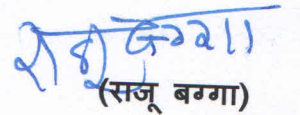 राजू बग्गा
(राजू बग्गा)